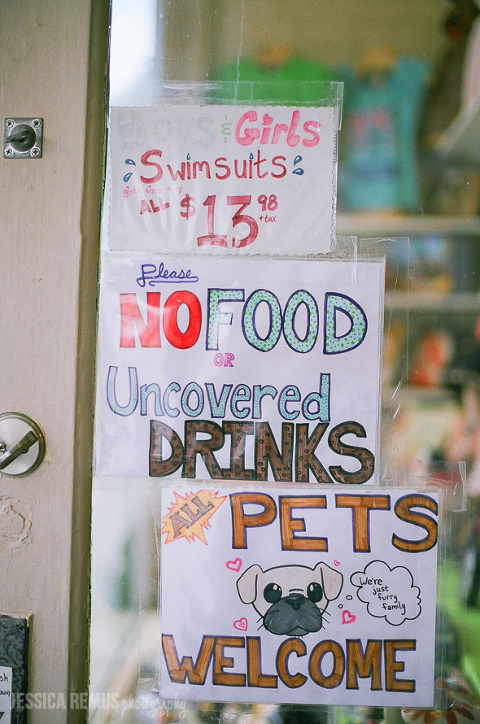 Boys & Girls
Swimsuits
ALL $13.98
+tax
Please
NO FOOD
OR
Uncovered
DRINKS
ALL
PETS
We're
just
furry
family
WELCOME
JESSICA REMUS photography